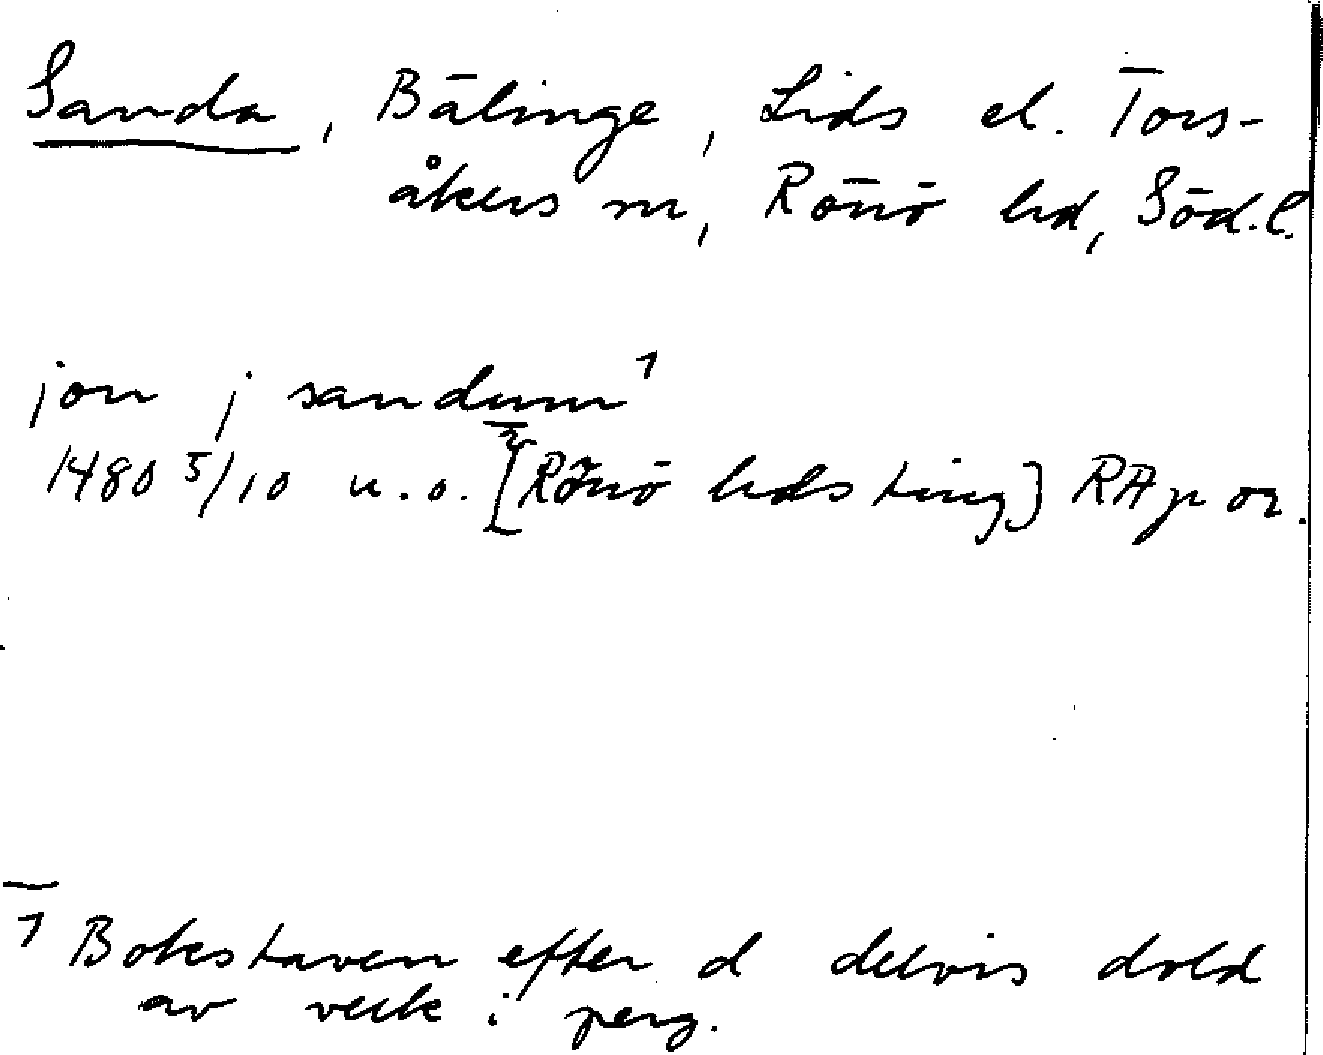 Sanda, Bälinge, Lids el. Tors-
åkers sn, Rönö hd, Söd.l.
jon j sandum¹
1480 5/10 u.o. [Rönö hds ting] RAp or.
¹ Bokstaven efter d delvis dold
av veck i perg.